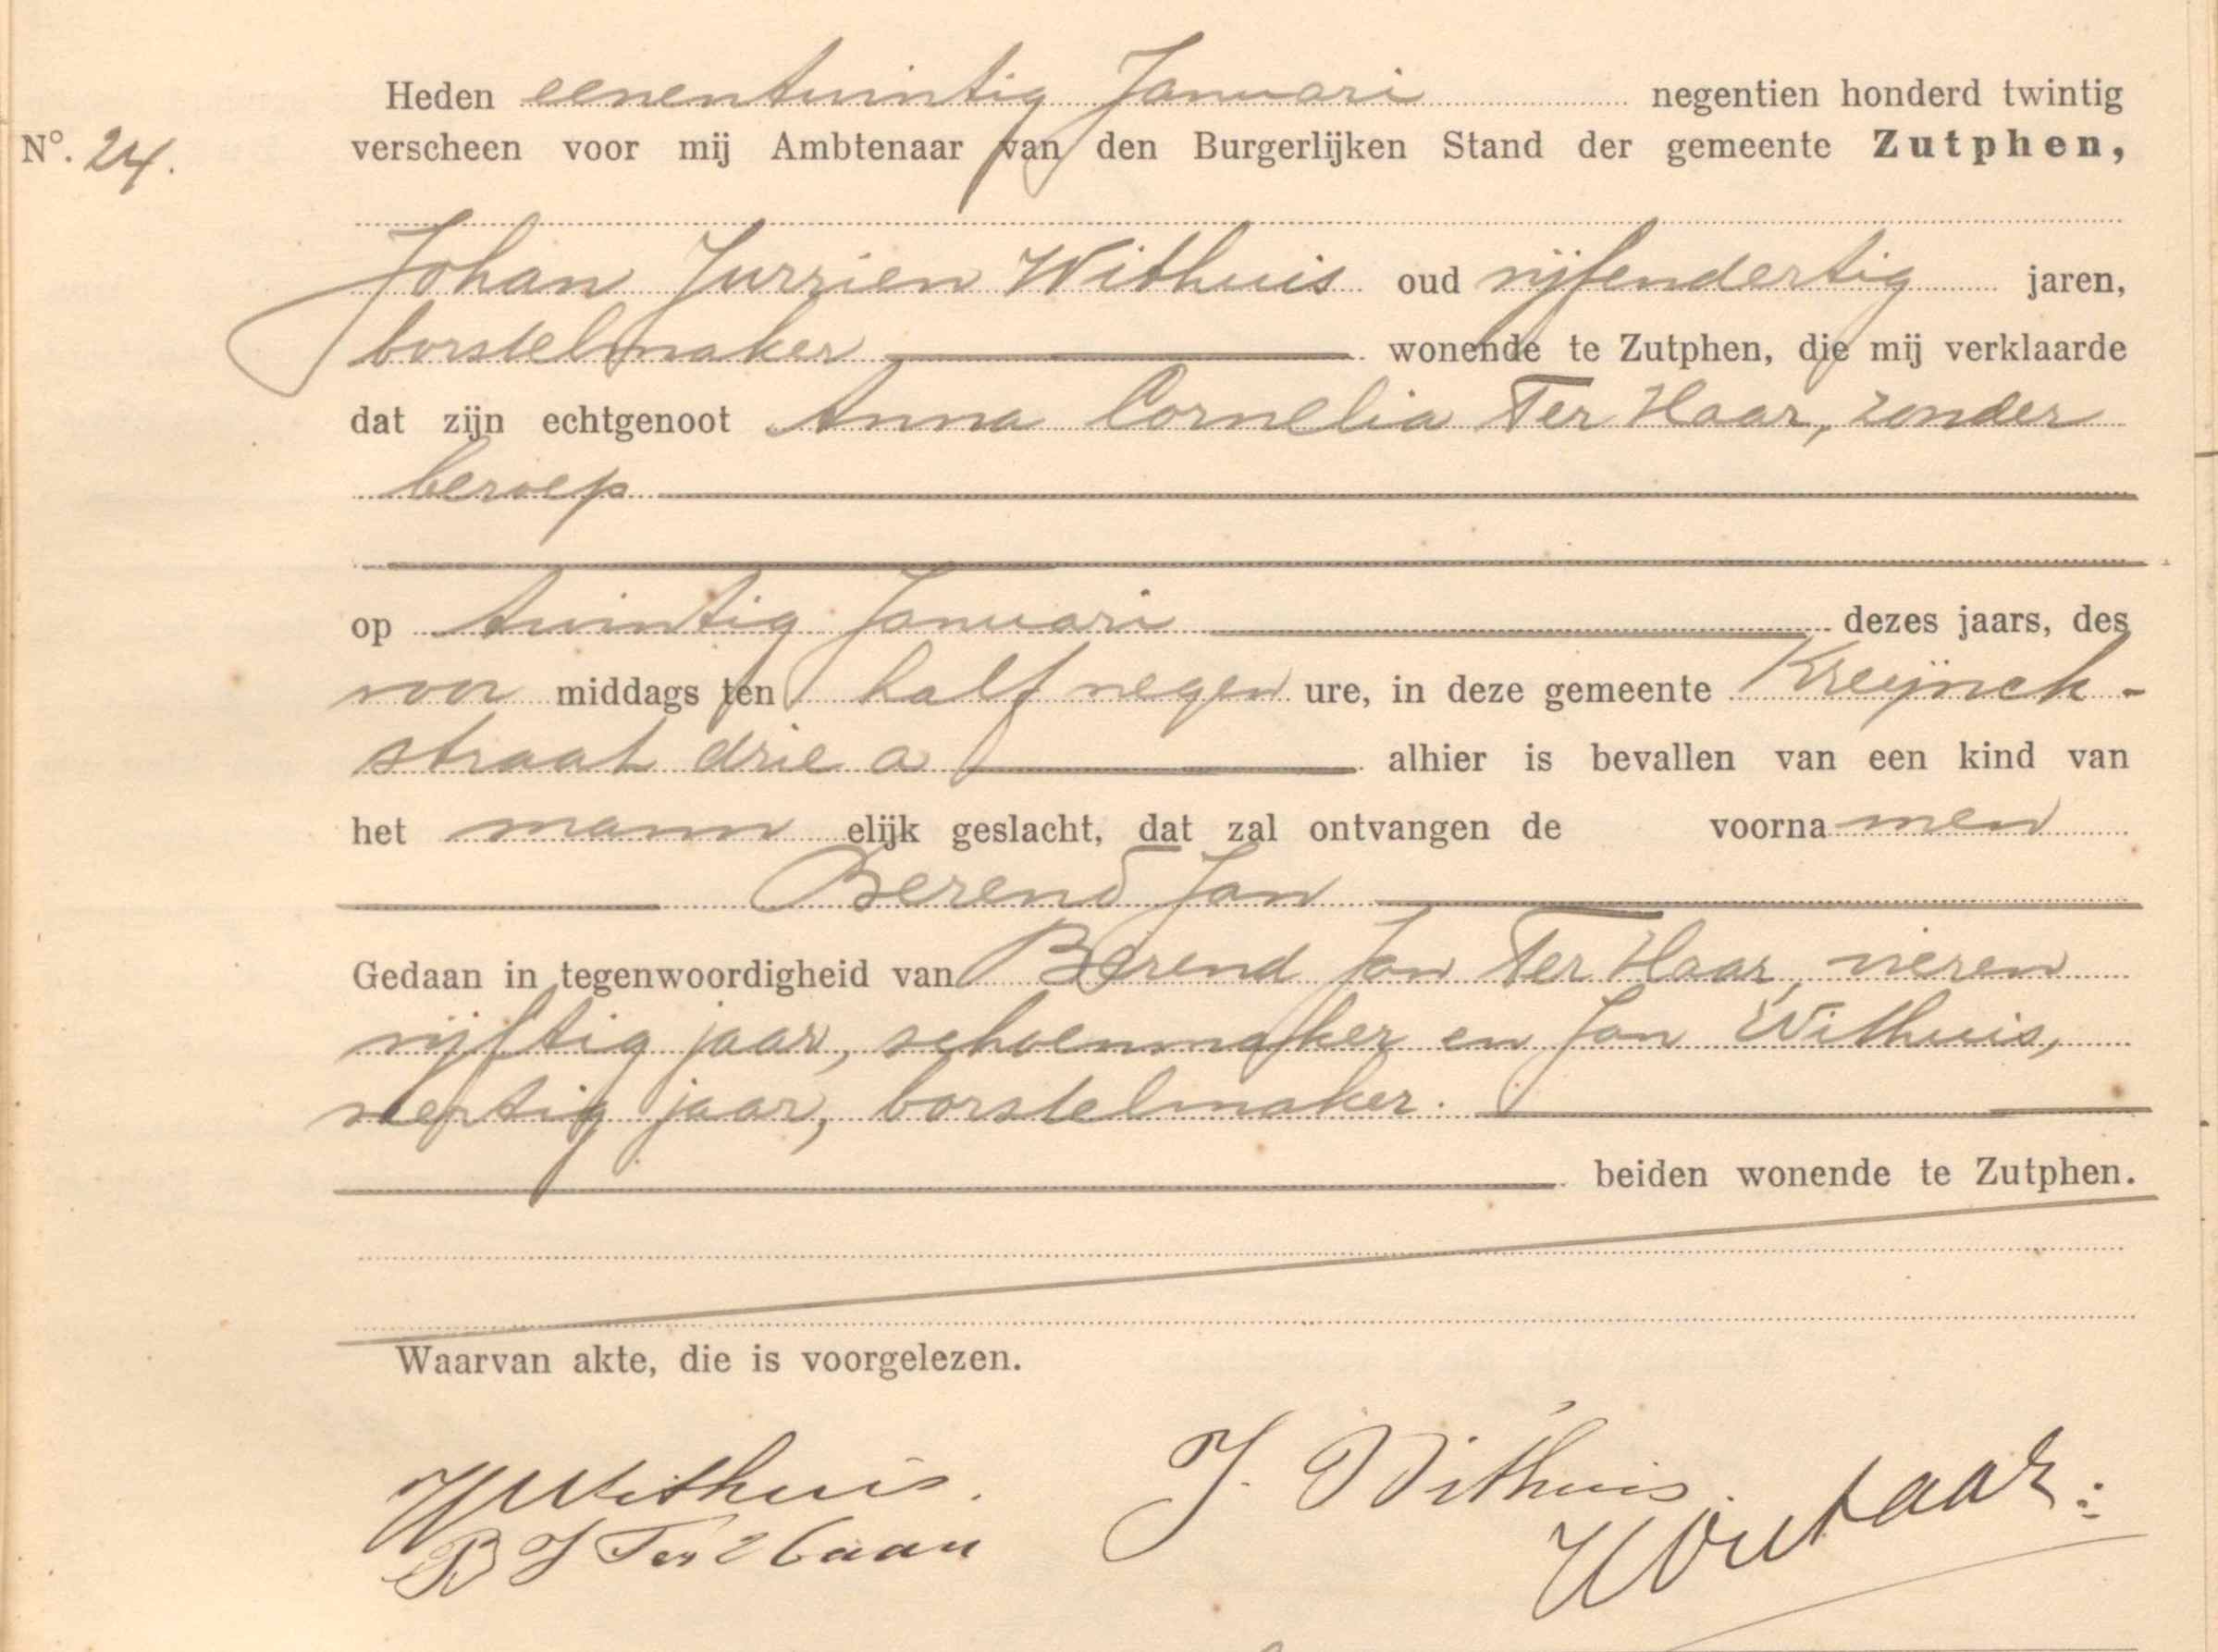 Heden eenentwintig Januari negentien honderd twintig
Nº. 24. verscheen voor mij Ambtenaar van den Burgerlijken Stand der gemeente Zutphen,
Johan Jurrien Withuis oud vijfendertig jaren,
borstelmaker wonende te Zutphen, die mij verklaarde
dat zijn echtgenoot Anna Cornelia Ter Haar, zonder
beroep
op twintig Januari dezes jaars, des
voor middags ten half negen ure, in deze gemeente Kreijnck-
straat drie a alhier is bevallen van een kind van
het mann elijk geslacht, dat zal ontvangen de voorna men
Berend Jan
Gedaan in tegenwoordigheid van Berend Jan Ter Haar, vieren
vijftig jaar, schoenmaker en Jan Withuis,
veertig jaar, borstelmaker.
beiden wonende te Zutphen.
Waarvan akte, die is voorgelezen.
JJ Withuis. J. Withuis.
B J Ter Haar